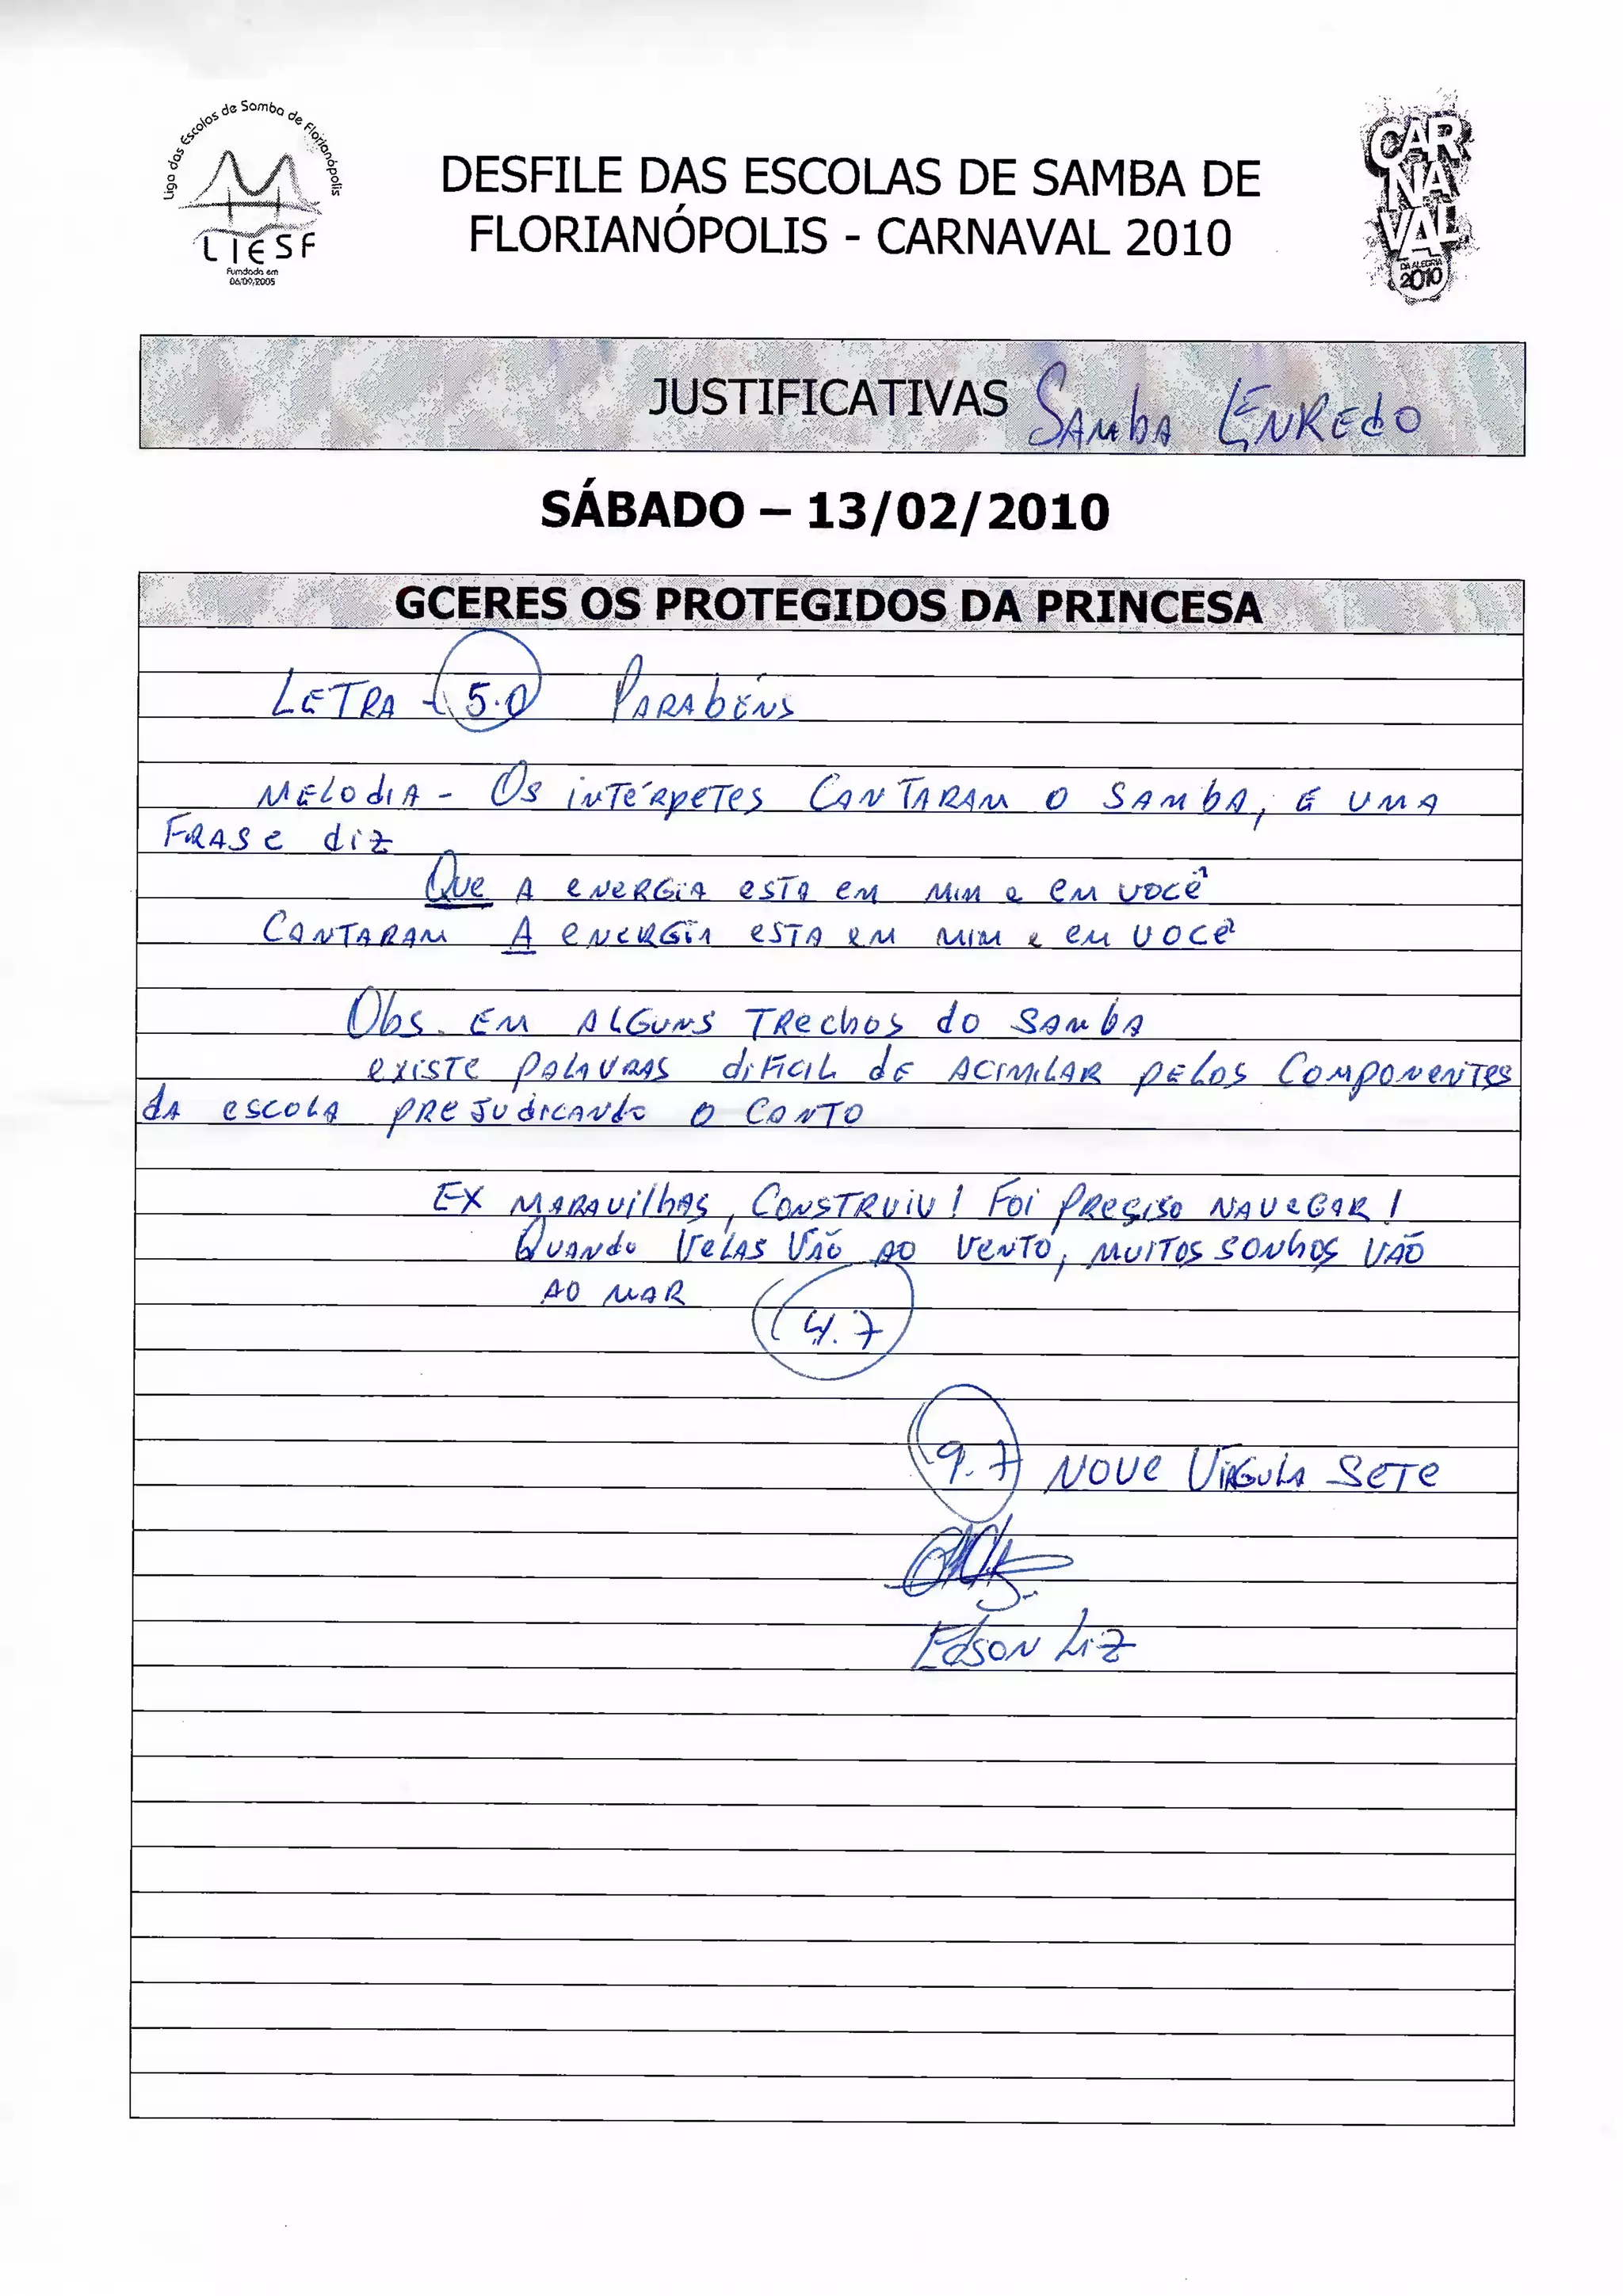 Liga das Escolas de Samba de Florianópolis
LIESF
Fundada em
06/09/2005
DESFILE DAS ESCOLAS DE SAMBA DE
FLORIANÓPOLIS - CARNAVAL 2010
CARNAVAL
DA ALEGRIA
2010
JUSTIFICATIVAS SAMbA ENREdO
SÁBADO – 13/02/2010
GCERES OS PROTEGIDOS DA PRINCESA
LETRA - 5.0 PARAbéNS
MELOdiA - Os inTérpeTes CANTARAM O SAMbA, E UMA
FRASe diz
Que A eNeRGiA esTA em MiM e em você
CANTARAM A eNeRGiA esTA em MiM e em você
Obs. EM ALGuNS TRechos do SAMbA
existe pALAVRAS diFiciL de ACiMiLAR peLos CoMpoNeNTes
dA escoLA pReJudicANdo o CANTO
EX MARAvilhAS, CoNSTRuiu! Foi pReciso NAVeGAR!
QuANdo VeLAS VÃo AO VeNTO, MuiTos SoNhos VÃO
AO MAR
4.7
9.7 NOVe VíRGuLA SeTe
EdsoN Liz